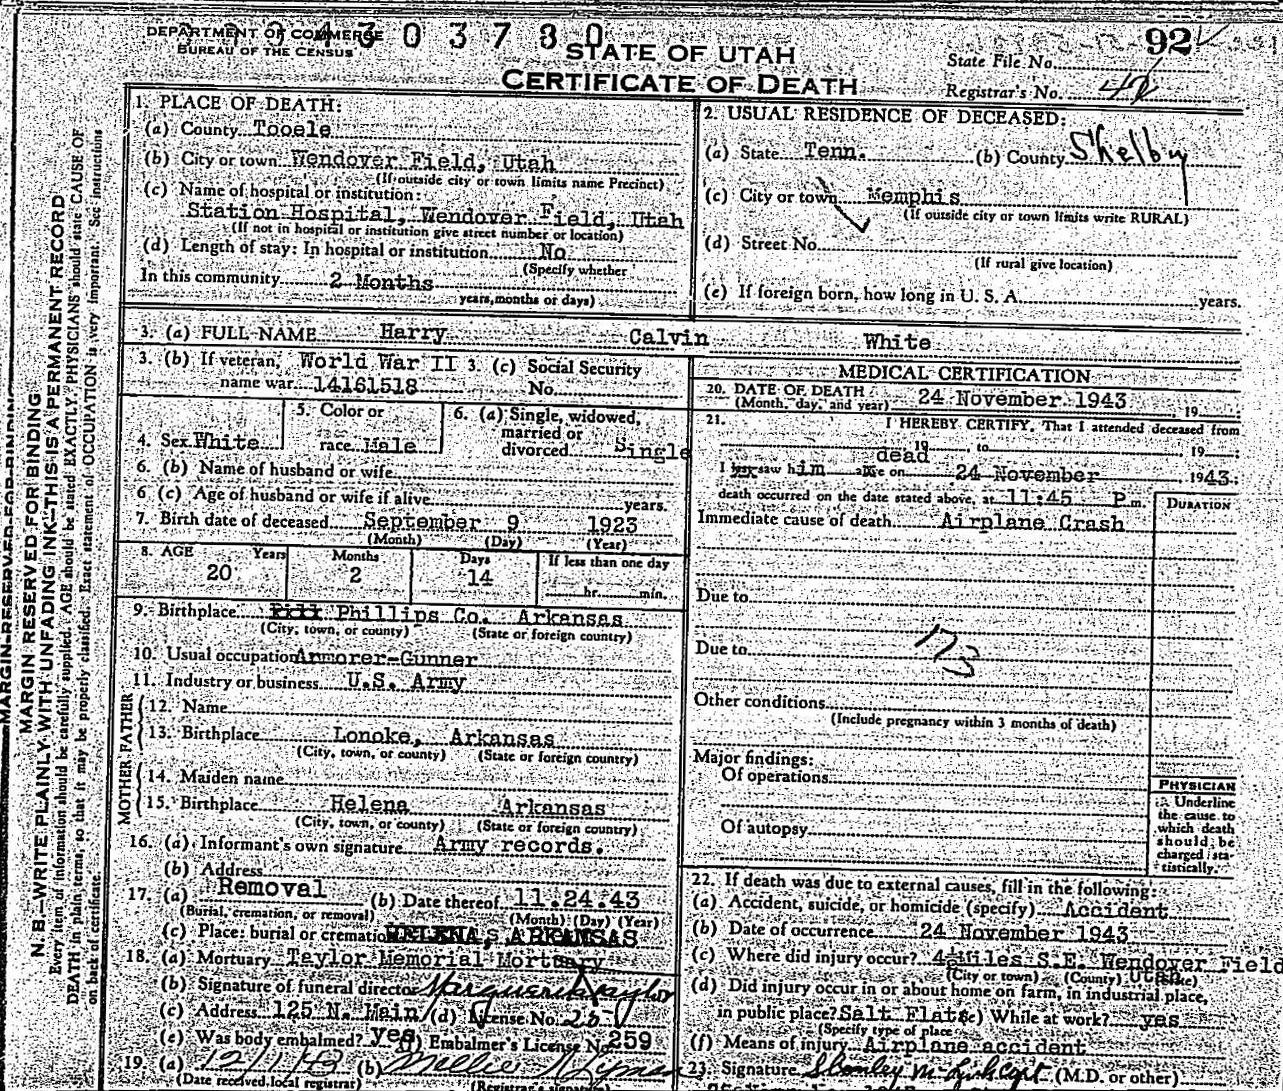 DEPARTMENT OF COMMERCE
BUREAU OF THE CENSUS
4303780
STATE OF UTAH
CERTIFICATE OF DEATH
92
State File No.
Registrar's No.
MARGIN RESERVED FOR BINDING
N. B.—WRITE PLAINLY WITH UNFADING INK—THIS IS A PERMANENT RECORD
Every item of information should be carefully supplied. AGE should be stated EXACTLY. PHYSICIANS should state CAUSE OF
DEATH in plain terms, so that it may be properly classified. Exact statement of OCCUPATION is very important. See instructions
on back of certificate.
1. PLACE OF DEATH:
(a) County Tooele
(b) City or town Wendover Field, Utah
(If outside city or town limits name Precinct)
(c) Name of hospital or institution:
Station Hospital, Wendover Field, Utah
(If not in hospital or institution give street number or location)
(d) Length of stay: In hospital or institution No
(Specify whether
In this community 2 Months
years, months or days)
2. USUAL RESIDENCE OF DECEASED:
(a) State Tenn. (b) County Shelby
(c) City or town Memphis
(If outside city or town limits write RURAL)
(d) Street No.
(If rural give location)
(e) If foreign born, how long in U. S. A. years.
3. (a) FULL NAME Harry Calvin White
3. (b) If veteran, World War II 3. (c) Social Security
name war 14161518 No.
4. Sex White
5. Color or
race Male
6. (a) Single, widowed,
married or
divorced Single
6. (b) Name of husband or wife
6 (c) Age of husband or wife if alive years.
7. Birth date of deceased September 9 1923
(Month) (Day) (Year)
8. AGE Years Months Days If less than one day
20 2 14 hr. min.
9. Birthplace Phillips Co. Arkansas
(City, town, or county) (State or foreign country)
10. Usual occupation Armorer-Gunner
11. Industry or business U.S. Army
FATHER
12. Name
13. Birthplace Lonoke, Arkansas
(City, town, or county) (State or foreign country)
MOTHER
14. Maiden name
15. Birthplace Helena Arkansas
(City, town, or county) (State or foreign country)
16. (a) Informant's own signature Army records.
(b) Address
17. (a) Removal (b) Date thereof 11.24.43
(Burial, cremation, or removal) (Month) (Day) (Year)
(c) Place: burial or cremation HELENA, ARKANSAS
18. (a) Mortuary Taylor Memorial Mortuary
(b) Signature of funeral director Marguerite Taylor
(c) Address 125 N. Main (d) License No.
(e) Was body embalmed? Yes (f) Embalmer's License No. 259
19. (a) 12/1/43 (b)
(Date received local registrar) (Registrar's signature)
MEDICAL CERTIFICATION
20. DATE OF DEATH 24 November 1943, 19
(Month, day, and year)
21. I HEREBY CERTIFY, That I attended deceased from
19 , to , 19 ;
dead
I last saw him alive on 24 November, 1943;
death occurred on the date stated above, at 11:45 P m.
DURATION
Immediate cause of death Airplane Crash
Due to
Due to
173
Other conditions
(Include pregnancy within 3 months of death)
Major findings:
Of operations
Of autopsy
PHYSICIAN
Underline
the cause to
which death
should be
charged sta-
tistically.
22. If death was due to external causes, fill in the following:
(a) Accident, suicide, or homicide (specify) Accident
(b) Date of occurrence 24 November 1943
(c) Where did injury occur? Miles S.E. Wendover Field
(City or town) (County) Utah (State)
(d) Did injury occur in or about home on farm, in industrial place,
in public place? Salt Flats (e) While at work? yes
(Specify type of place)
(f) Means of injury Airplane accident
23. Signature Stanley M. (M.D. or other)